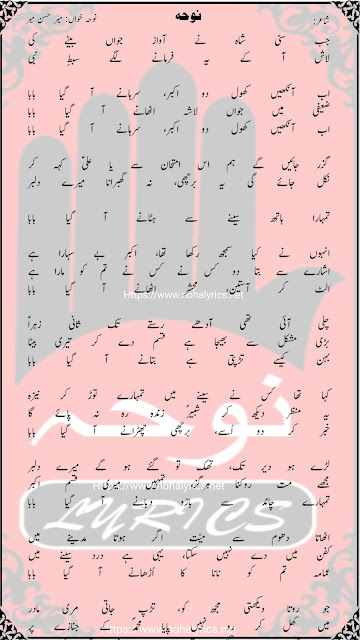 نوحہ
شاعر: نوحہ خواں: میر حسن میر
جب سنی شاہ نے آواز جواں بیٹے کی
لاش آ کے یہ فرمانے لگے سبطِ نبی
اب آنکھیں کھول دو اکبر، سرہانے آ گیا بابا
ضعیفی میں جواں لاشہ اٹھانے آ گیا بابا
اب آنکھیں کھول دو اکبر، سرہانے آ گیا بابا
گزر جائیں گے ہم اس امتحان سے یا علیؑ کہہ کر
نکل جائے گی یہ برچھی، نہ گھبرانا میرے دلبر
تمہارا ہاتھ سینے سے ہٹانے آ گیا بابا
انہوں نے کیا سمجھ رکھا تھا، اکبر بے سہارا ہے
اشارے سے بتا دو کس نے کس نے تم کو مارا ہے
الٹ کر آستین، محشر اٹھانے آ گیا بابا
Https://www.nohalyrics.net
چلی آئی تھی آدھے رستے تک ثانی زہراؑ
بڑی مشکل سے بھیجا ہے قسم دے کر تیری بیٹا
بہن کیسے تڑپتی ہے بتانے آ گیا بابا
کہا تھا کس نے سینے میں تمہارے توڑ کر نیزہ
یہ منظر دیکھ کر شبیرؑ زندہ رہ نہ پائے گا
خبر کر دو اُسے، برچھی چھڑانے آ گیا بابا
نوحہ
لڑے ہو دیر تک، تھک تو گئے ہو گے میرے دلبر
مجھے مت روکنا ہرگز تمہیں میری قسم اکبر
تمہارے چاند سے بازو دبانے آ گیا بابا
LYRICS
اٹھاتا دھوم سے میّت اگر ہوتا مدینے میں
کفن میں دے نہیں سکتا، یہی ہے درد سینے میں
عمامہ تم کو نانا کا اُڑھانے آ گیا بابا
جو روتا دیکھتی مجھ کو، تڑپ جاتی مری مادر
میں کھل کر رو نہیں پایا کے جنازے پر
https://www.nohalyrics.net